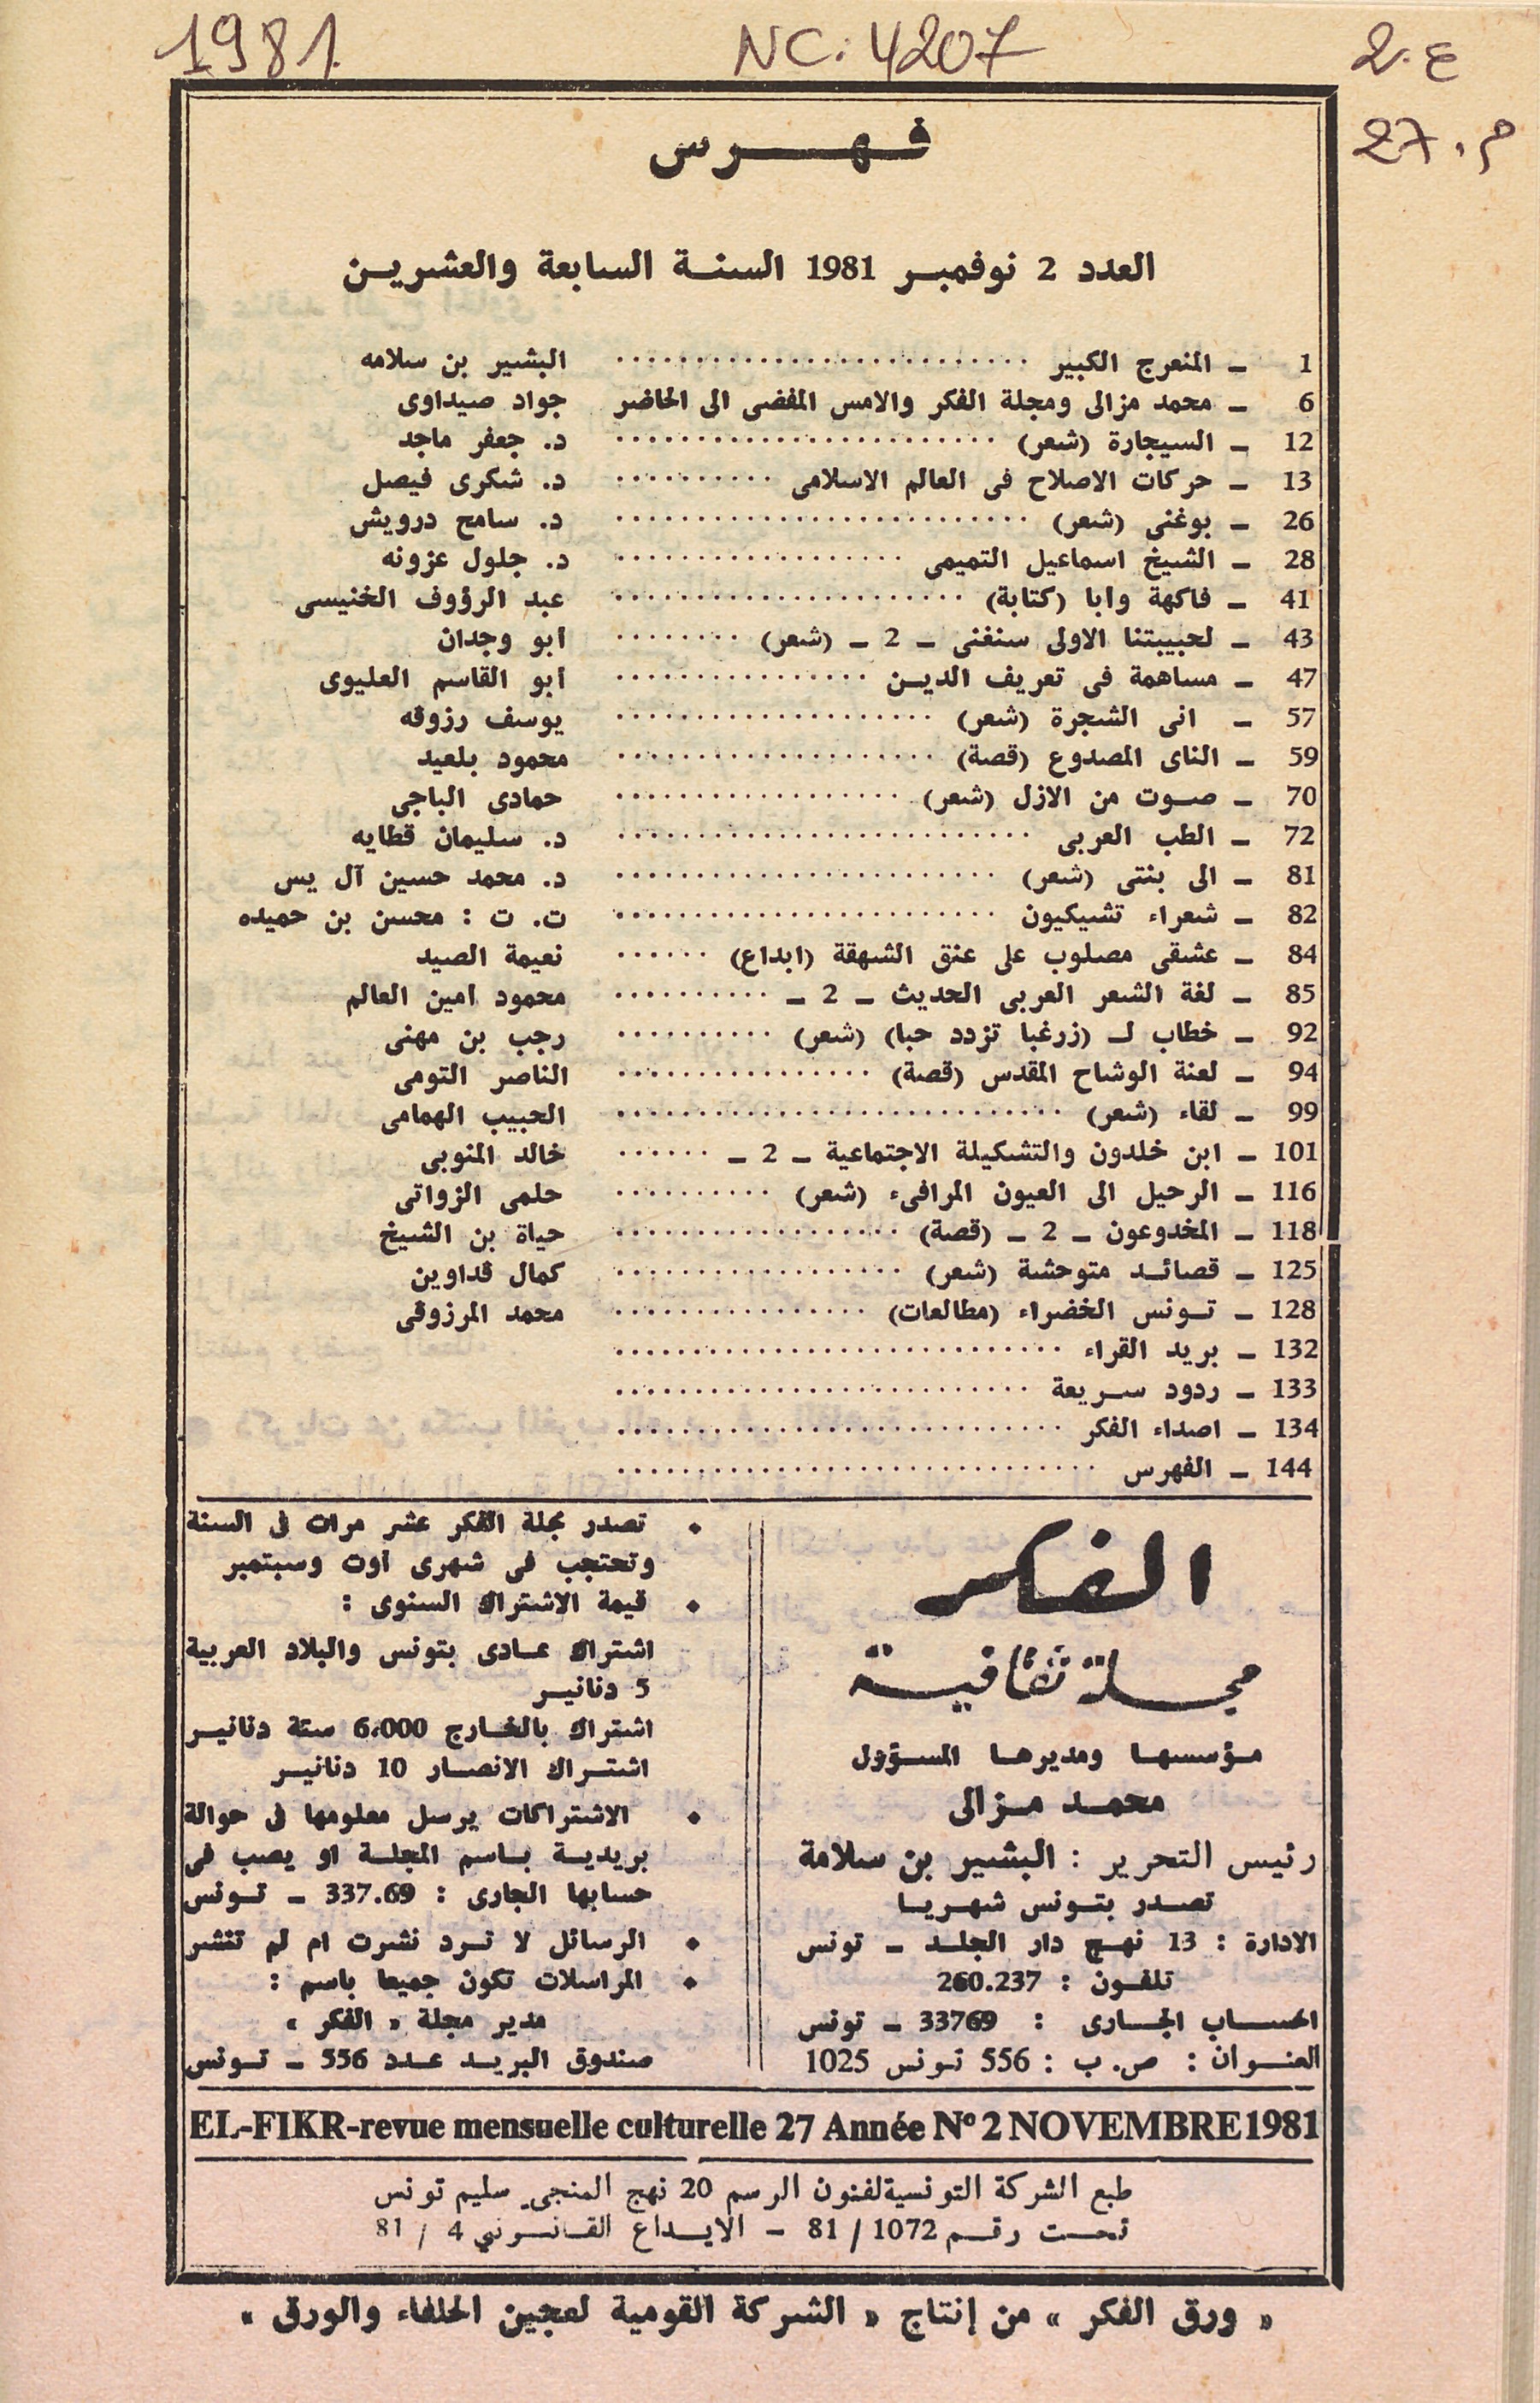 1981.
NC. 4207
ع. 2
م. 27
فهرس
العدد 2 نوفمبر 1981 السنة السابعة والعشرين
1 – المنعرج الكبير .......................... البشير بن سلامه
6 – محمد مزالى ومجلة الفكر والامس المفضى الى الحاضر جواد صيداوى
12 – السيجارة (شعر) ........................ د. جعفر ماجد
13 – حركات الاصلاح فى العالم الاسلامى .......... د. شكرى فيصل
26 – بوغنى (شعر) .......................... د. سامح درويش
28 – الشيخ اسماعيل التميمى .................. د. جلول عزونه
41 – فاكهة وابا (كتابة) ...................... عبد الرؤوف الخنيسى
43 – لحبيبتنا الاولى سنغنى – 2 – (شعر) ........ ابو وجدان
47 – مساهمة فى تعريف الدين ................ ابو القاسم العليوى
57 – انى الشجرة (شعر) .................... يوسف رزوقه
59 – الناى المصدوع (قصة) .................... محمود بلعيد
70 – صوت من الازل (شعر) .................. حمادى الباجى
72 – الطب العربى .......................... د. سليمان قطايه
81 – الى بنتى (شعر) ........................ د. محمد حسين آل يس
82 – شعراء تشيكيون ........................ ت. ت : محسن بن حميده
84 – عشقى مصلوب على عنق الشهقة (ابداع) ...... نعيمة الصيد
85 – لغة الشعر العربى الحديث – 2 – .......... محمود امين العالم
92 – خطاب لـ (زرغبا تزدد حبا) (شعر) .......... رجب بن مهنى
94 – لعنة الوشاح المقدس (قصة) ................ الناصر التومى
99 – لقاء (شعر) ............................ الحبيب الهمامى
101 – ابن خلدون والتشكيلة الاجتماعية – 2 – ...... خالد المنوبى
116 – الرحيل الى العيون المرافىء (شعر) .......... حلمى الزواتى
118 – المخدوعون – 2 – (قصة) .................. حياة بن الشيخ
125 – قصائد متوحشة (شعر) .................. كمال ڤداوين
128 – تونس الخضراء (مطالعات) ................ محمد المرزوقى
132 – بريد القراء ............................
133 – ردود سريعة ..........................
134 – اصداء الفكر ............................
144 – الفهرس ..............................
الفكر
مجلة ثقافية
مؤسسها ومديرها المسؤول
محمد مزالى
رئيس التحرير : البشير بن سلامة
تصدر بتونس شهريا
الادارة : 13 نهج دار الجلد – تونس
تلفون : 260.237
الحساب الجارى : 33769 – تونس
العنوان : ص. ب : 556 تونس 1025
• تصدر مجلة الفكر عشر مرات فى السنة
وتحتجب فى شهرى اوت وسبتمبر
• قيمة الاشتراك السنوى :
اشتراك عادى بتونس والبلاد العربية
5 دنانير
اشتراك بالخارج 6،000 ستة دنانير
اشتراك الانصار 10 دنانير
• الاشتراكات يرسل معلومها فى حوالة
بريدية باسم المجلة او يصب فى
حسابها الجارى : 337.69 – تونس
• الرسائل لا ترد نشرت ام لم تنشر
• المراسلات تكون جميعا باسم :
مدير مجلة « الفكر »
صندوق البريد عدد 556 – تونس
EL-FIKR-revue mensuelle culturelle 27 Année N° 2 NOVEMBRE 1981
طبع الشركة التونسية لفنون الرسم 20 نهج المنجى سليم تونس
تحت رقم 1072 / 81 – الايداع القانوني 4 / 81
« ورق الفكر » من إنتاج « الشركة القومية لعجين الحلفاء والورق »